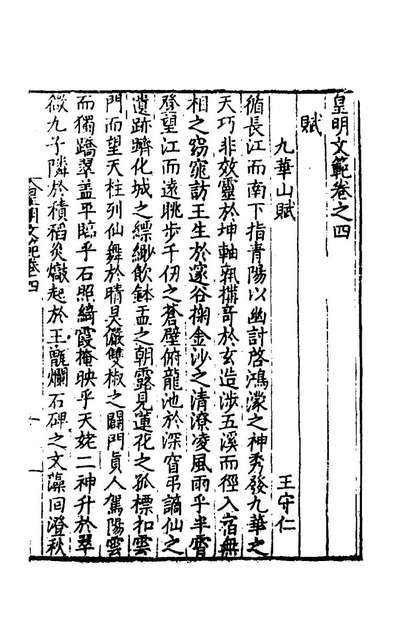 皇明文範卷之四
賦
九華山賦 王守仁
循長江而南下指青陽以幽討啓鴻濛之神秀發九華之
天巧非效靈於坤軸孰搆奇於玄造涉五溪而徑入宿無
相之窈窕訪王生於邃谷掬金沙之清潦凌風雨乎半霄
登望江而遠眺步千仞之蒼壁俯龍池於深窅弔謫仙之
遺跡躋化城之縹緲飲鉢盂之朝露見蓮花之孤標扣雲
門而望天柱列仙舞於晴昊儼雙椒之闢門真人駕陽雲
而獨蹻翠盖平臨乎石照綺霞掩映乎天姥二神升於翠
微九子隣於積稻炎熇起於玉甑爛石碑之文藻回澄秋
皇明文範卷四